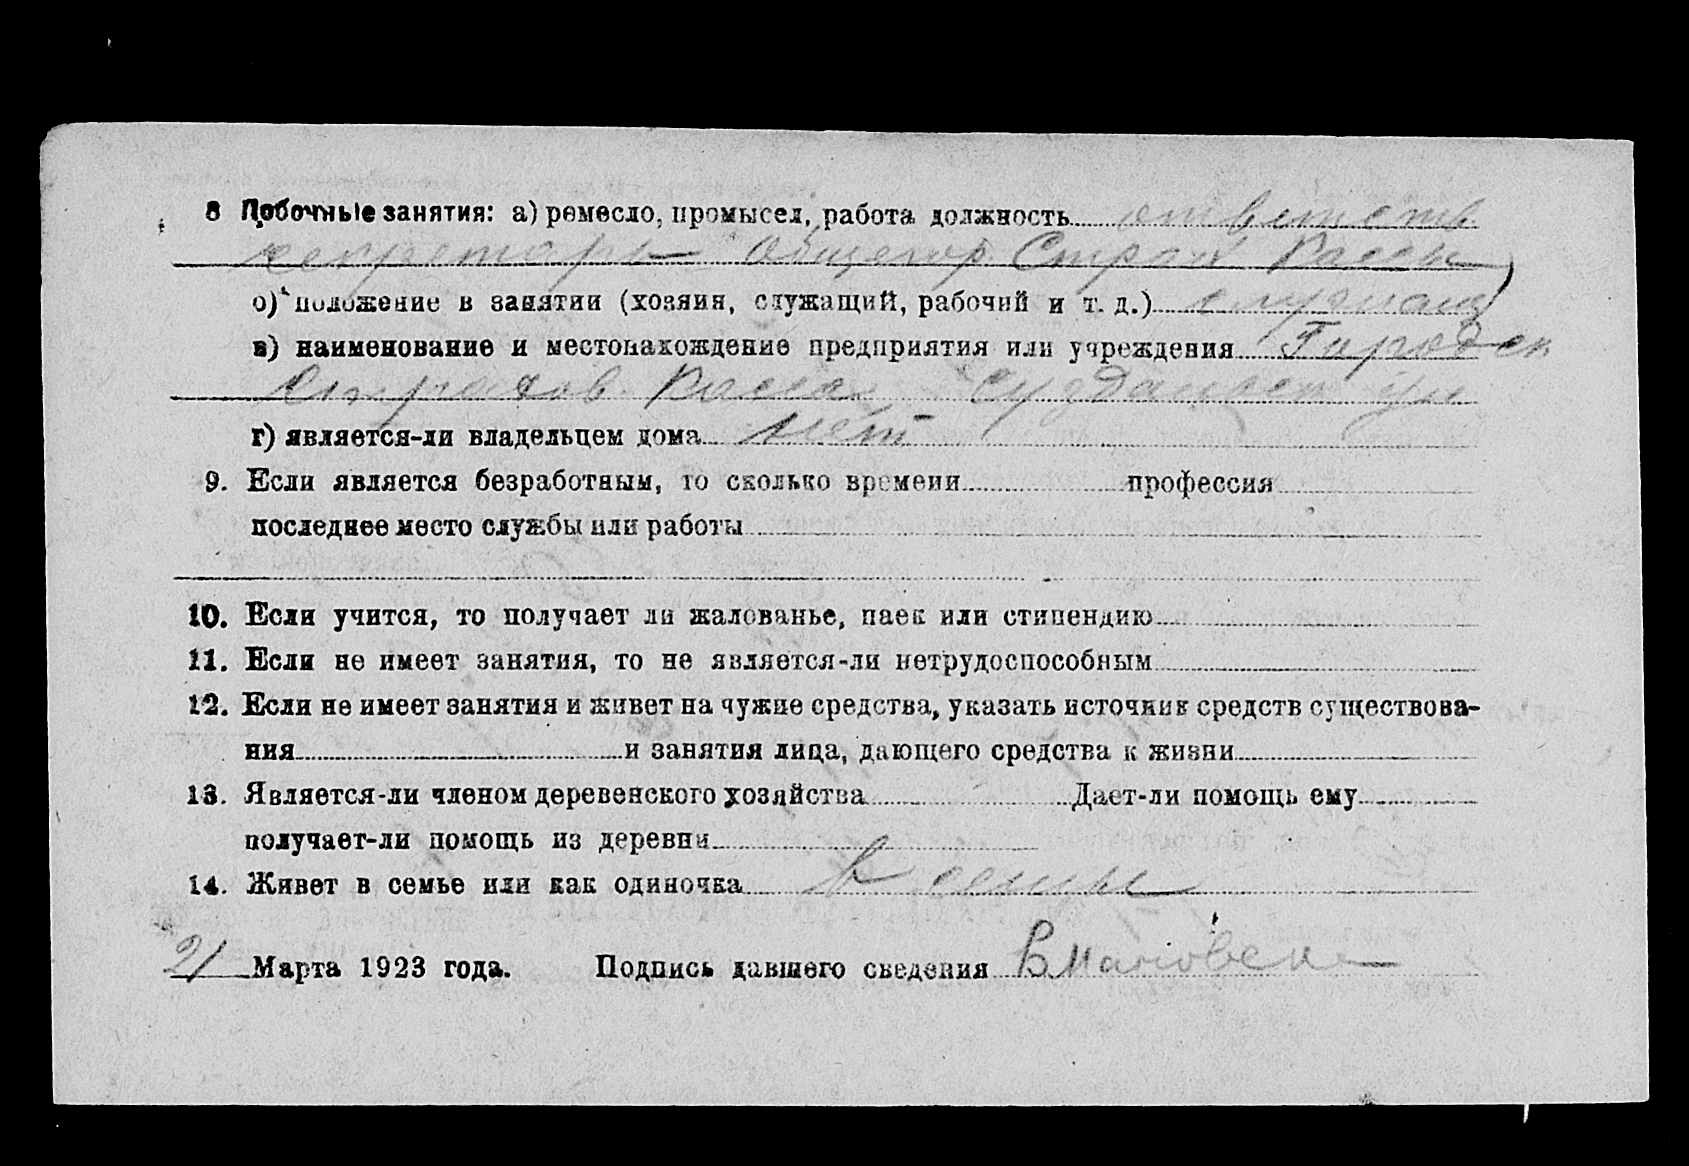 8 Побочные занятия: а) ремесло, промысел, работа должность ответств
секретарь Общегор. Страх Кассы
б) положение в занятии (хозяин, служащий, рабочий и т. д.) служащ
в) наименование и местонахождение предприятия или учреждения Городск
Страхов. Касса Суздальск ул
г) является-ли владельцем дома нет
9. Если является безработным, то сколько времени профессия
последнее место службы или работы
10. Если учится, то получает ли жалованье, паек или стипендию
11. Если не имеет занятия, то не является-ли нетрудоспособным
12. Если не имеет занятия и живет на чужие средства, указать источник средств существова-
ния и занятия лица, дающего средства к жизни
13. Является-ли членом деревенского хозяйства Дает-ли помощь ему
получает-ли помощь из деревни
14. Живет в семье или как одиночка в семьи
21 Марта 1923 года. Подпись давшего сведения